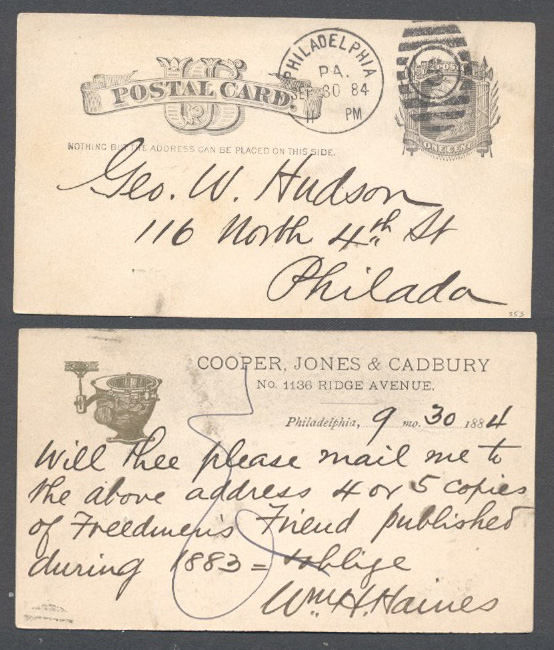 US
POSTAL CARD.
PHILADELPHIA
PA.
SEP 30 84
11 PM
NOTHING BUT THE ADDRESS CAN BE PLACED ON THIS SIDE.
ONE CENT
Geo. W. Hudson
116 North 4th St
Philada
353
COOPER, JONES & CADBURY
No. 1136 RIDGE AVENUE.
Philadelphia, 9 mo. 30 1884
Will thee please mail me to
the above address 4 or 5 copies
of Freedmen's Friend published
during 1883 = & oblige
Wm H. Haines